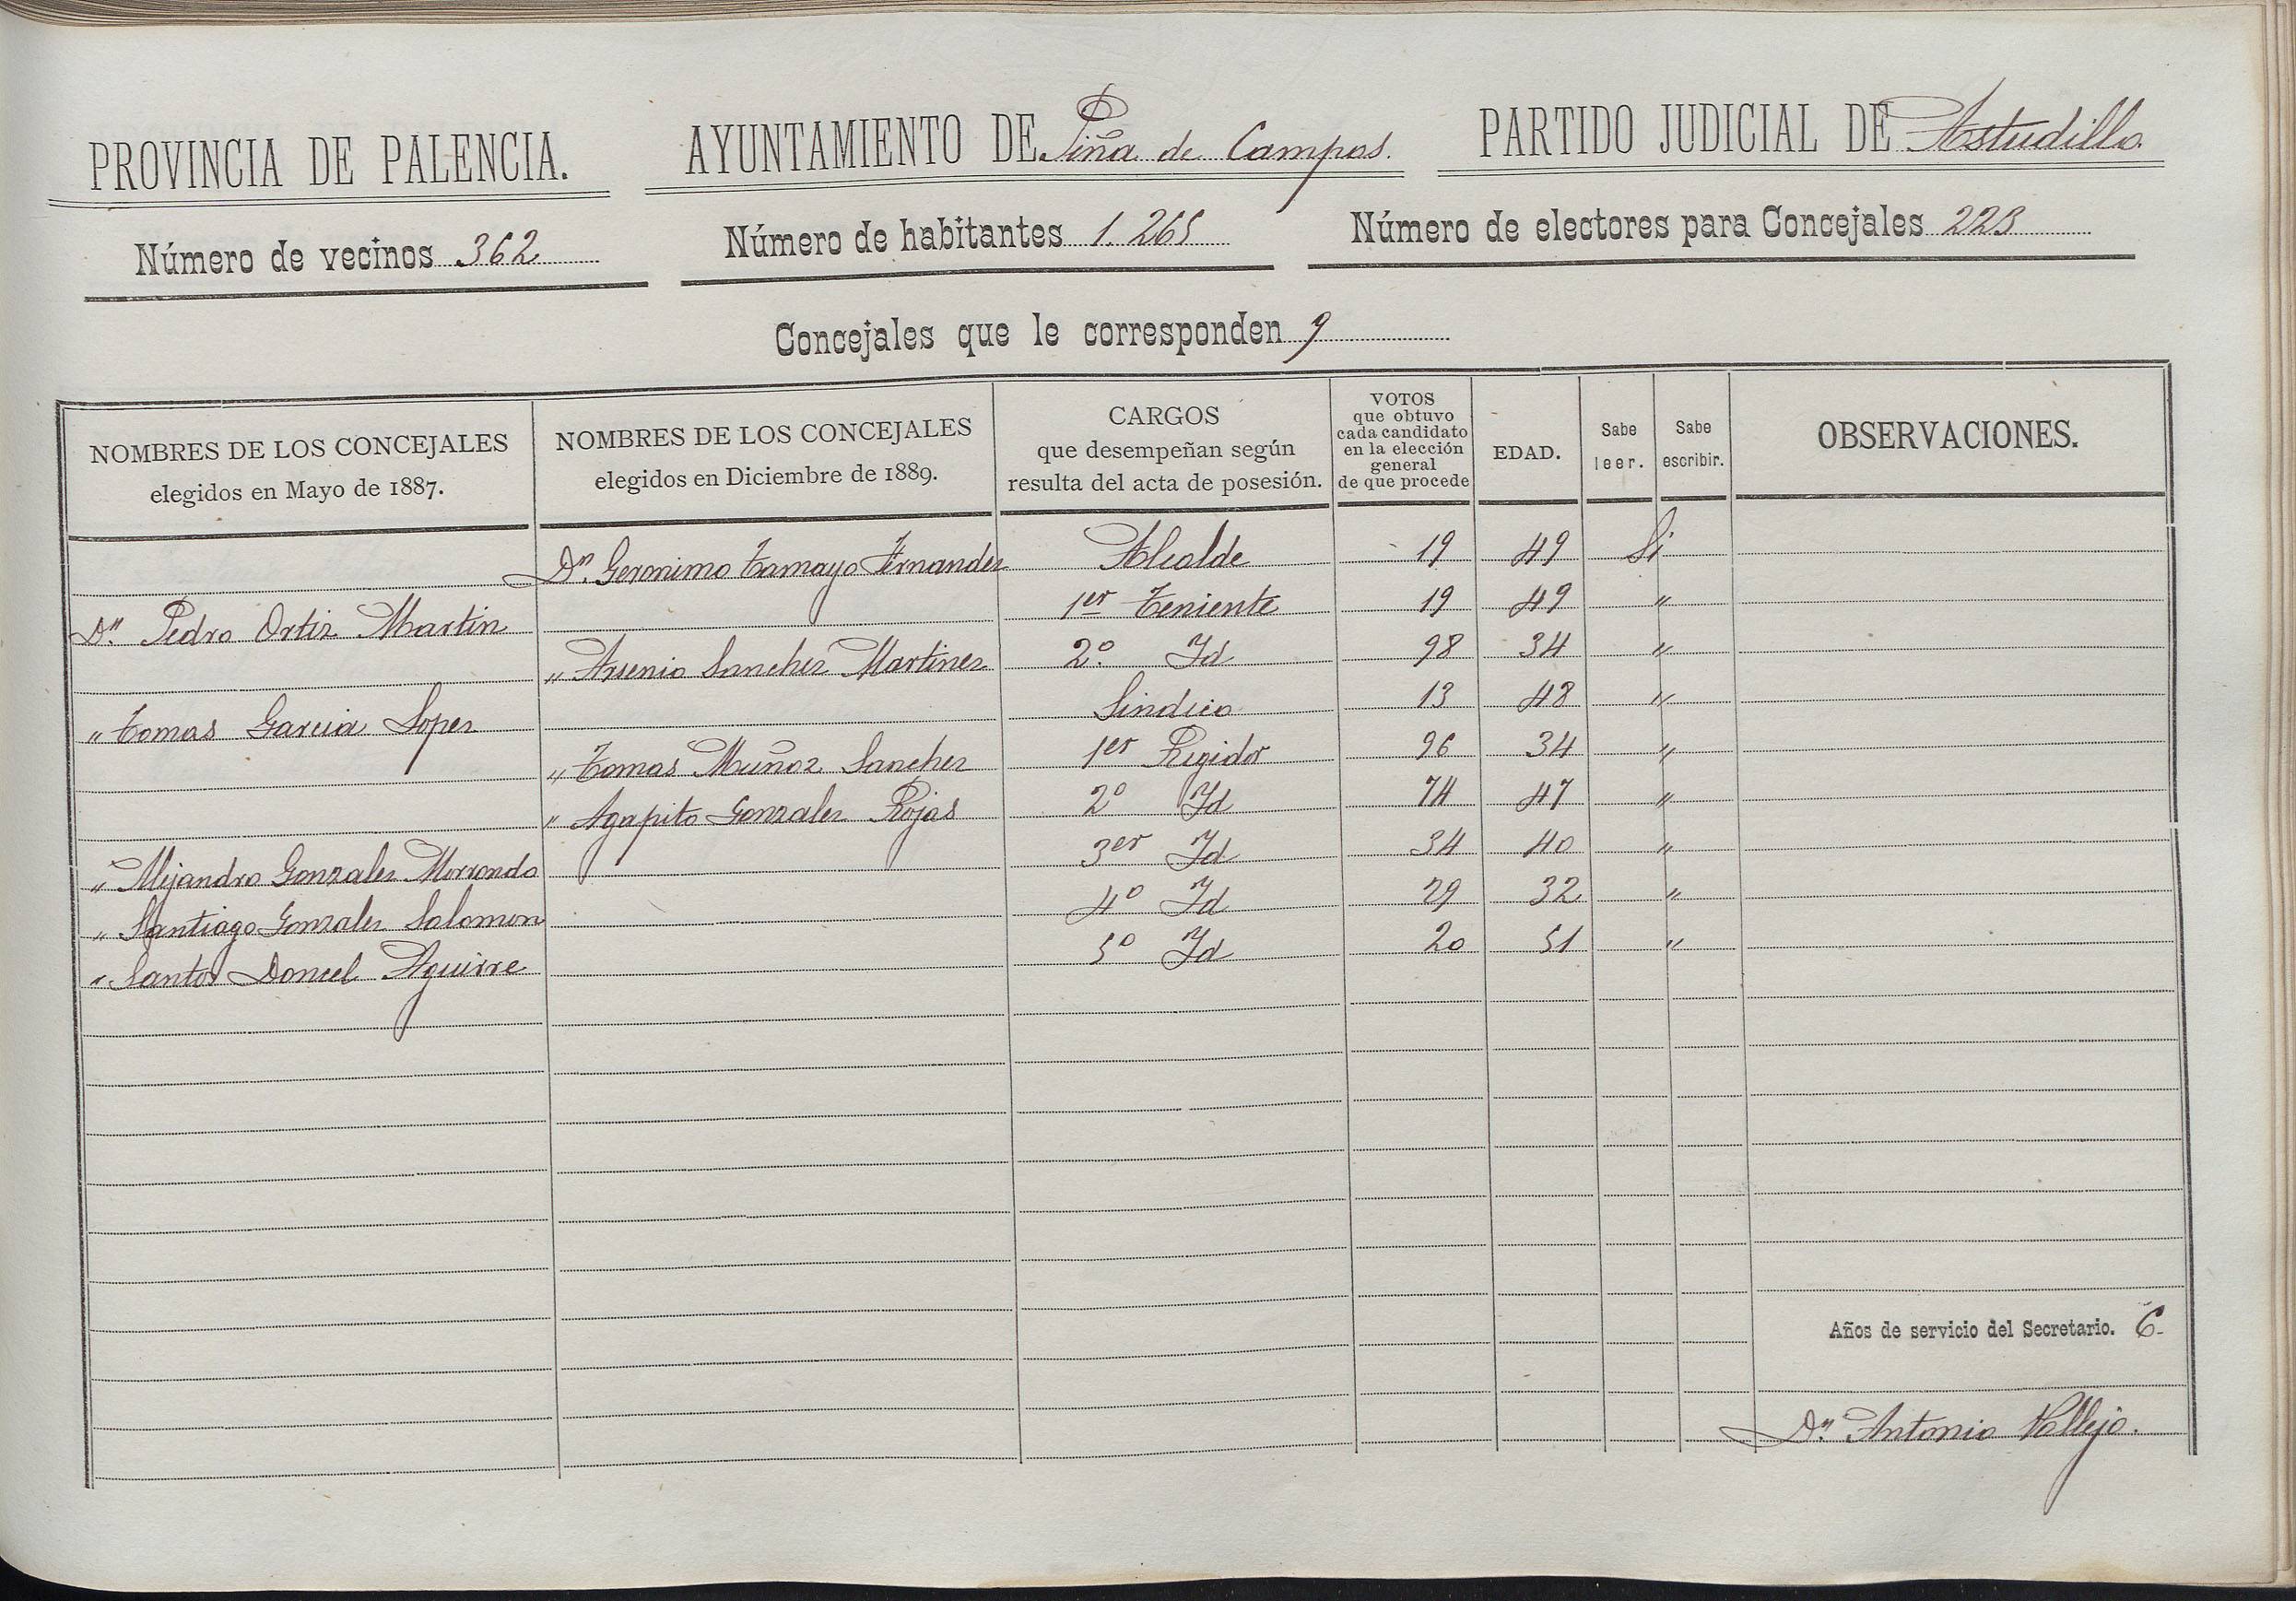 PROVINCIA DE PALENCIA. AYUNTAMIENTO DE Piña de Campos. PARTIDO JUDICIAL DE Astudillo.
Número de vecinos 362 Número de habitantes 1.265 Número de electores para Concejales 223
Concejales que le corresponden 9
NOMBRES DE LOS CONCEJALES elegidos en Mayo de 1887. NOMBRES DE LOS CONCEJALES elegidos en Diciembre de 1889. CARGOS que desempeñan según resulta del acta de posesión. VOTOS que obtuvo cada candidato en la elección general de que procede EDAD. Sabe leer. Sabe escribir. OBSERVACIONES.
Dn. Geronimo Tamayo Fernandez Alcalde 19 49 Si
Dn Pedro Ortiz Martin 1er Teniente 19 49 "
" Arsenio Sanchez Martinez 2º Id 98 34 "
" Tomas Garcia Lopez Sindico 13 48 "
" Tomas Muñoz Sanchez 1er Regidor 96 34 "
" Agapito Gonzalez Rojas 2º Id 74 47 "
" Alejandro Gonzalez Morrondo 3er Id 34 40 "
" Santiago Gonzalez Salomon 4º Id 29 32 "
" Santos Doncel Aguirre 5º Id 20 51 "
Años de servicio del Secretario. 6
Dn Antonio Vallejo.